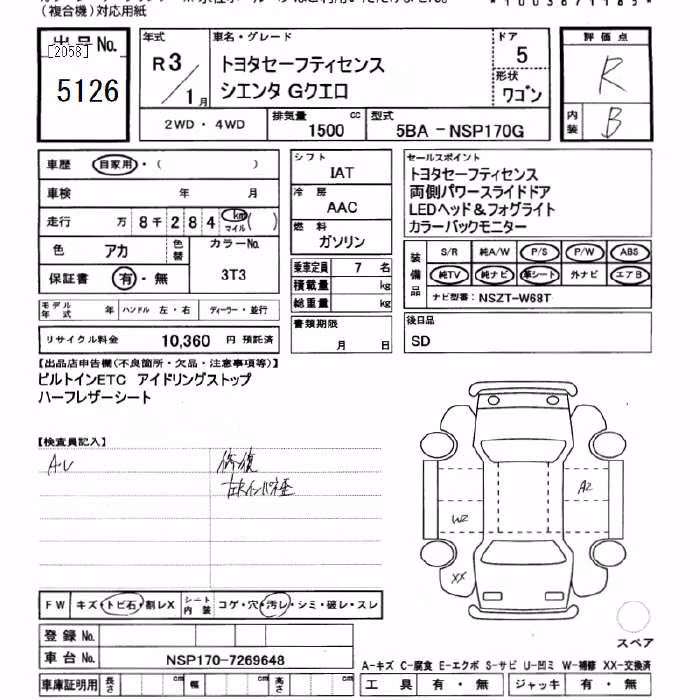 (複合機)対応用紙
出品No.
[2058]
5126
年式
R3/1月
車名・グレード
トヨタセーフティセンス
シエンタ Gクエロ
ドア
5
形状
ワゴン
評価点
R
内装
B
2WD・4WD
排気量
1500 cc
型式
5BA - NSP170G
車歴 自家用・( )
車検 年 月
走行 万 8千 2 8 4 km マイル ( )
色 アカ 色替
カラーNo.
3T3
保証書 有・無
シフト
IAT
冷房
AAC
燃料
ガソリン
乗車定員 7 名
積載量 kg
総重量 kg
セールスポイント
トヨタセーフティセンス
両側パワースライドドア
LEDヘッド&フォグライト
カラーバックモニター
装備品
S/R 純A/W P/S P/W ABS
純TV 純ナビ 革シート 外ナビ エアB
ナビ型番: NSZT-W68T
モデル年式 年 ハンドル 左・右 ディーラー・並行
リサイクル料金 10,360 円 預託済
書類期限
月 日
後日品
SD
【出品店申告欄(不良箇所・欠品・注意事項等)】
ビルトインETC アイドリングストップ
ハーフレザーシート
【検査員記入】
AU
修復
W2
A2
XX
FW キズ・トビ石・割レX シート内装 コゲ・穴・汚レ・シミ・破レ・スレ
スペア
登録No.
車台No. NSP170-7269648
A-キズ C-腐食 E-エクボ S-サビ U-凹ミ W-補修 XX-交換済
車庫証明用 長さ cm 幅 cm 高さ cm
工具 有・無 ジャッキ 有・無